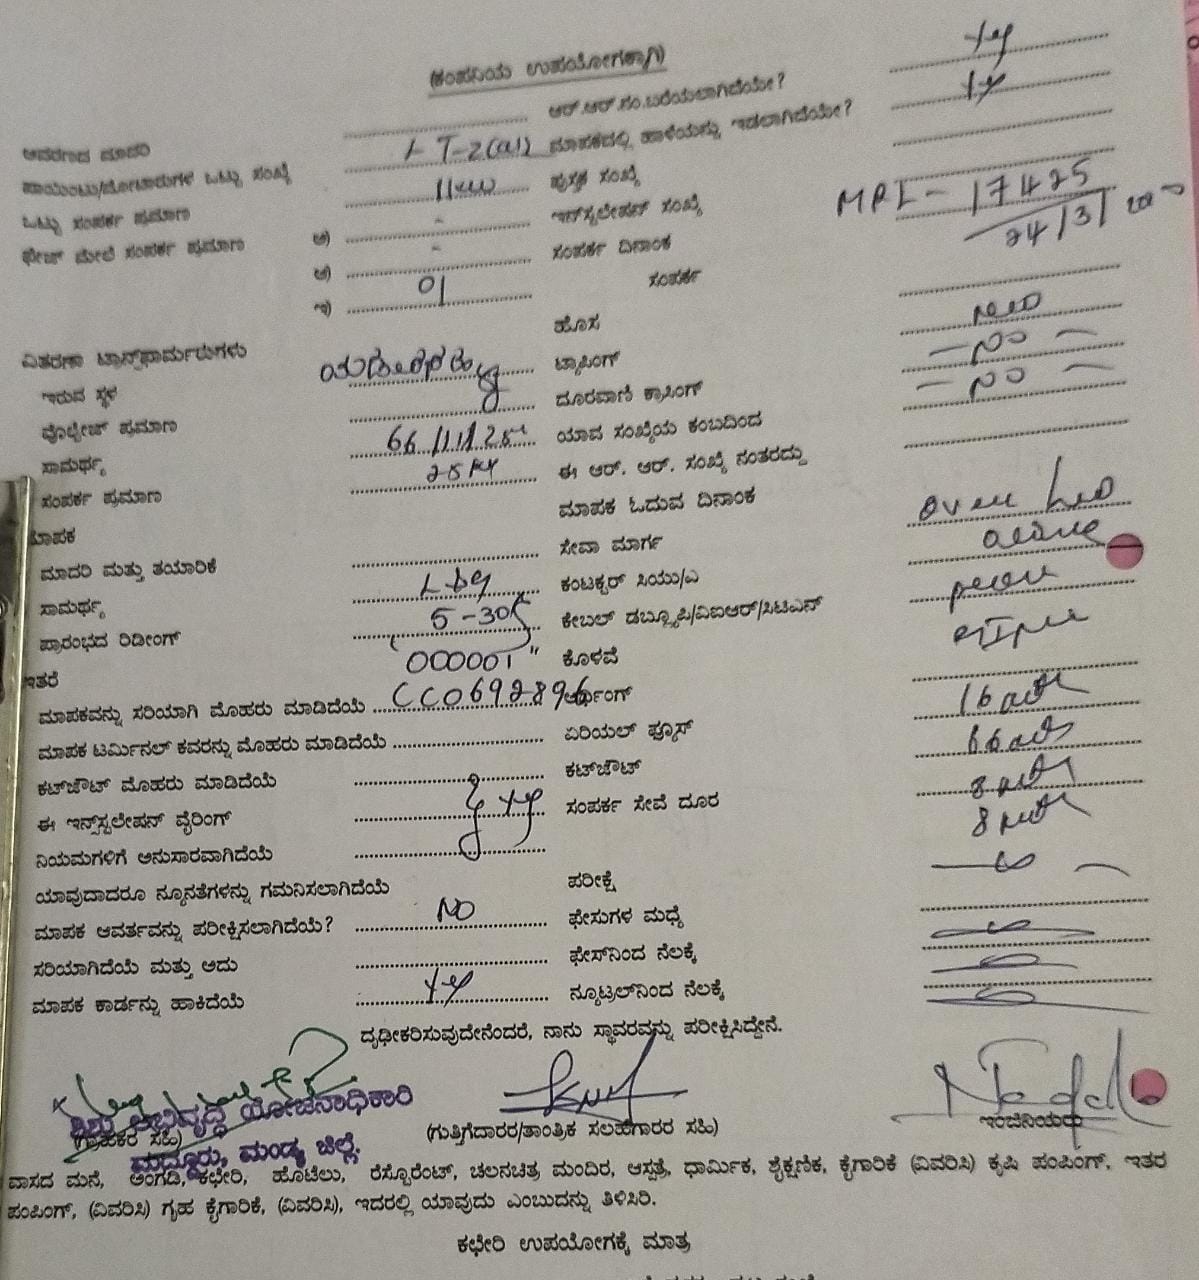 (ಕಂಪನಿಯ ಉಪಯೋಗಕ್ಕಾಗಿ)
ಆರ್.ಆರ್.ನಂ.ಬರೆಯಲಾಗಿದೆಯೇ? Yes
ಆವರಣದ ಮಾದರಿ LT-2(a1) ಮಾಪಕದಲ್ಲಿ ಹಾಳೆಯನ್ನು ಇಡಲಾಗಿದೆಯೇ? Yes
ಪಾಯಿಂಟು/ಮೋಟಾರುಗಳ ಒಟ್ಟು ಸಂಖ್ಯೆ 11kw ಪುಸ್ತಕ ಸಂಖ್ಯೆ
ಒಟ್ಟು ಸಂಪರ್ಕ ಪ್ರಮಾಣ ಅ) - ಇನ್‌ಸ್ಟಲೇಷನ್ ಸಂಖ್ಯೆ MPL - 17425
ಫೇಜ್ ಮೇಲೆ ಸಂಪರ್ಕ ಪ್ರಮಾಣ ಆ) - ಸಂಪರ್ಕ ದಿನಾಂಕ 24/3/
ಇ) 01 ಸಂಪರ್ಕ
ಹೊಸ New
ವಿತರಣಾ ಟ್ರಾನ್ಸ್‌ಫಾರ್ಮರುಗಳು ಟ್ಯಾಪಿಂಗ್ - NO -
ಇರುವ ಸ್ಥಳ ದೂರವಾಣಿ ಕ್ರಾಸಿಂಗ್ - NO -
ವೊಲ್ಟೇಜ್ ಪ್ರಮಾಣ 66/11/ ಯಾವ ಸಂಖ್ಯೆಯ ಕಂಬದಿಂದ
ಸಾಮರ್ಥ್ಯ 25 ಈ ಆರ್. ಆರ್. ಸಂಖ್ಯೆ ನಂತರದ್ದು
ಸಂಪರ್ಕ ಪ್ರಮಾಣ ಮಾಪಕ ಓದುವ ದಿನಾಂಕ
ಮಾಪಕ ಸೇವಾ ಮಾರ್ಗ over head
ಮಾದರಿ ಮತ್ತು ತಯಾರಿಕೆ L&g ಕಂಟಕ್ಟರ್ ಸಿಯು/ಎ
ಸಾಮರ್ಥ್ಯ 5-30A ಕೇಬಲ್ ಡಬ್ಲ್ಯೂಪಿ/ವಿಐಆರ್/ಸಿಟಿಎನ್
ಪ್ರಾರಂಭದ ರಿಡೀಂಗ್ "000001" ಕೊಳವೆ
ಇತರೆ
ಮಾಪಕವನ್ನು ಸರಿಯಾಗಿ ಮೊಹರು ಮಾಡಿದೆಯೆ CC0692896 ಅರ್ಥಿಂಗ್
ಮಾಪಕ ಟರ್ಮಿನಲ್ ಕವರನ್ನು ಮೊಹರು ಮಾಡಿದೆಯೆ ಏರಿಯಲ್ ಫ್ಯೂಸ್
ಕಟ್‌ಔಟ್ ಮೊಹರು ಮಾಡಿದೆಯೆ ಕಟ್‌ಔಟ್
ಈ ಇನ್ಸ್‌ಸ್ಟಲೇಷನ್ ವೈರಿಂಗ್ Yes ಸಂಪರ್ಕ ಸೇವೆ ದೂರ
ನಿಯಮಗಳಿಗೆ ಅನುಸಾರವಾಗಿದೆಯೆ
ಯಾವುದಾದರೂ ನ್ಯೂನತೆಗಳನ್ನು ಗಮನಿಸಲಾಗಿದೆಯೆ ಪರೀಕ್ಷೆ
ಮಾಪಕ ಆವರ್ತವನ್ನು ಪರೀಕ್ಷಿಸಲಾಗಿದೆಯೆ? NO ಫೇಸುಗಳ ಮಧ್ಯೆ
ಸರಿಯಾಗಿದೆಯೆ ಮತ್ತು ಅದು ಫೇಸ್‌ನಿಂದ ನೆಲಕ್ಕೆ
ಮಾಪಕ ಕಾರ್ಡನ್ನು ಹಾಕಿದೆಯೆ Yes ನ್ಯೂಟ್ರಲ್‌ನಿಂದ ನೆಲಕ್ಕೆ
ದೃಢೀಕರಿಸುವುದೇನೆಂದರೆ, ನಾನು ಸ್ಥಾವರವನ್ನು ಪರೀಕ್ಷಿಸಿದ್ದೇನೆ.
ಶಿಶು ಅಭಿವೃದ್ಧಿ ಯೋಜನಾಧಿಕಾರಿ
(ಗ್ರಾಹಕರ ಸಹಿ) (ಗುತ್ತಿಗೆದಾರರ/ತಾಂತ್ರಿಕ ಸಲಹೆಗಾರರ ಸಹಿ) ಇಂಜಿನಿಯರು
ಮದ್ದೂರು, ಮಂಡ್ಯ ಜಿಲ್ಲೆ.
ವಾಸದ ಮನೆ, ಅಂಗಡಿ, ಕಛೇರಿ, ಹೊಟೆಲು, ರೆಸ್ಟೊರೆಂಟ್, ಚಲನಚಿತ್ರ ಮಂದಿರ, ಆಸ್ಪತ್ರೆ, ಧಾರ್ಮಿಕ, ಶೈಕ್ಷಣಿಕ, ಕೈಗಾರಿಕೆ (ವಿವರಿಸಿ) ಕೃಷಿ ಪಂಪಿಂಗ್, ಇತರ
ಪಂಪಿಂಗ್, (ವಿವರಿಸಿ) ಗೃಹ ಕೈಗಾರಿಕೆ, (ವಿವರಿಸಿ), ಇದರಲ್ಲಿ ಯಾವುದು ಎಂಬುದನ್ನು ತಿಳಿಸಿರಿ.
ಕಛೇರಿ ಉಪಯೋಗಕ್ಕೆ ಮಾತ್ರ